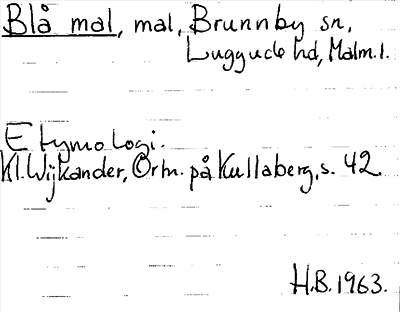 Blå mal, mal, Brunnby sn,
Luggude hd, Malm. l.
Etymologi.
Kl. Wijkander, Ortn. på Kullaberg, s. 42
H.B. 1963.